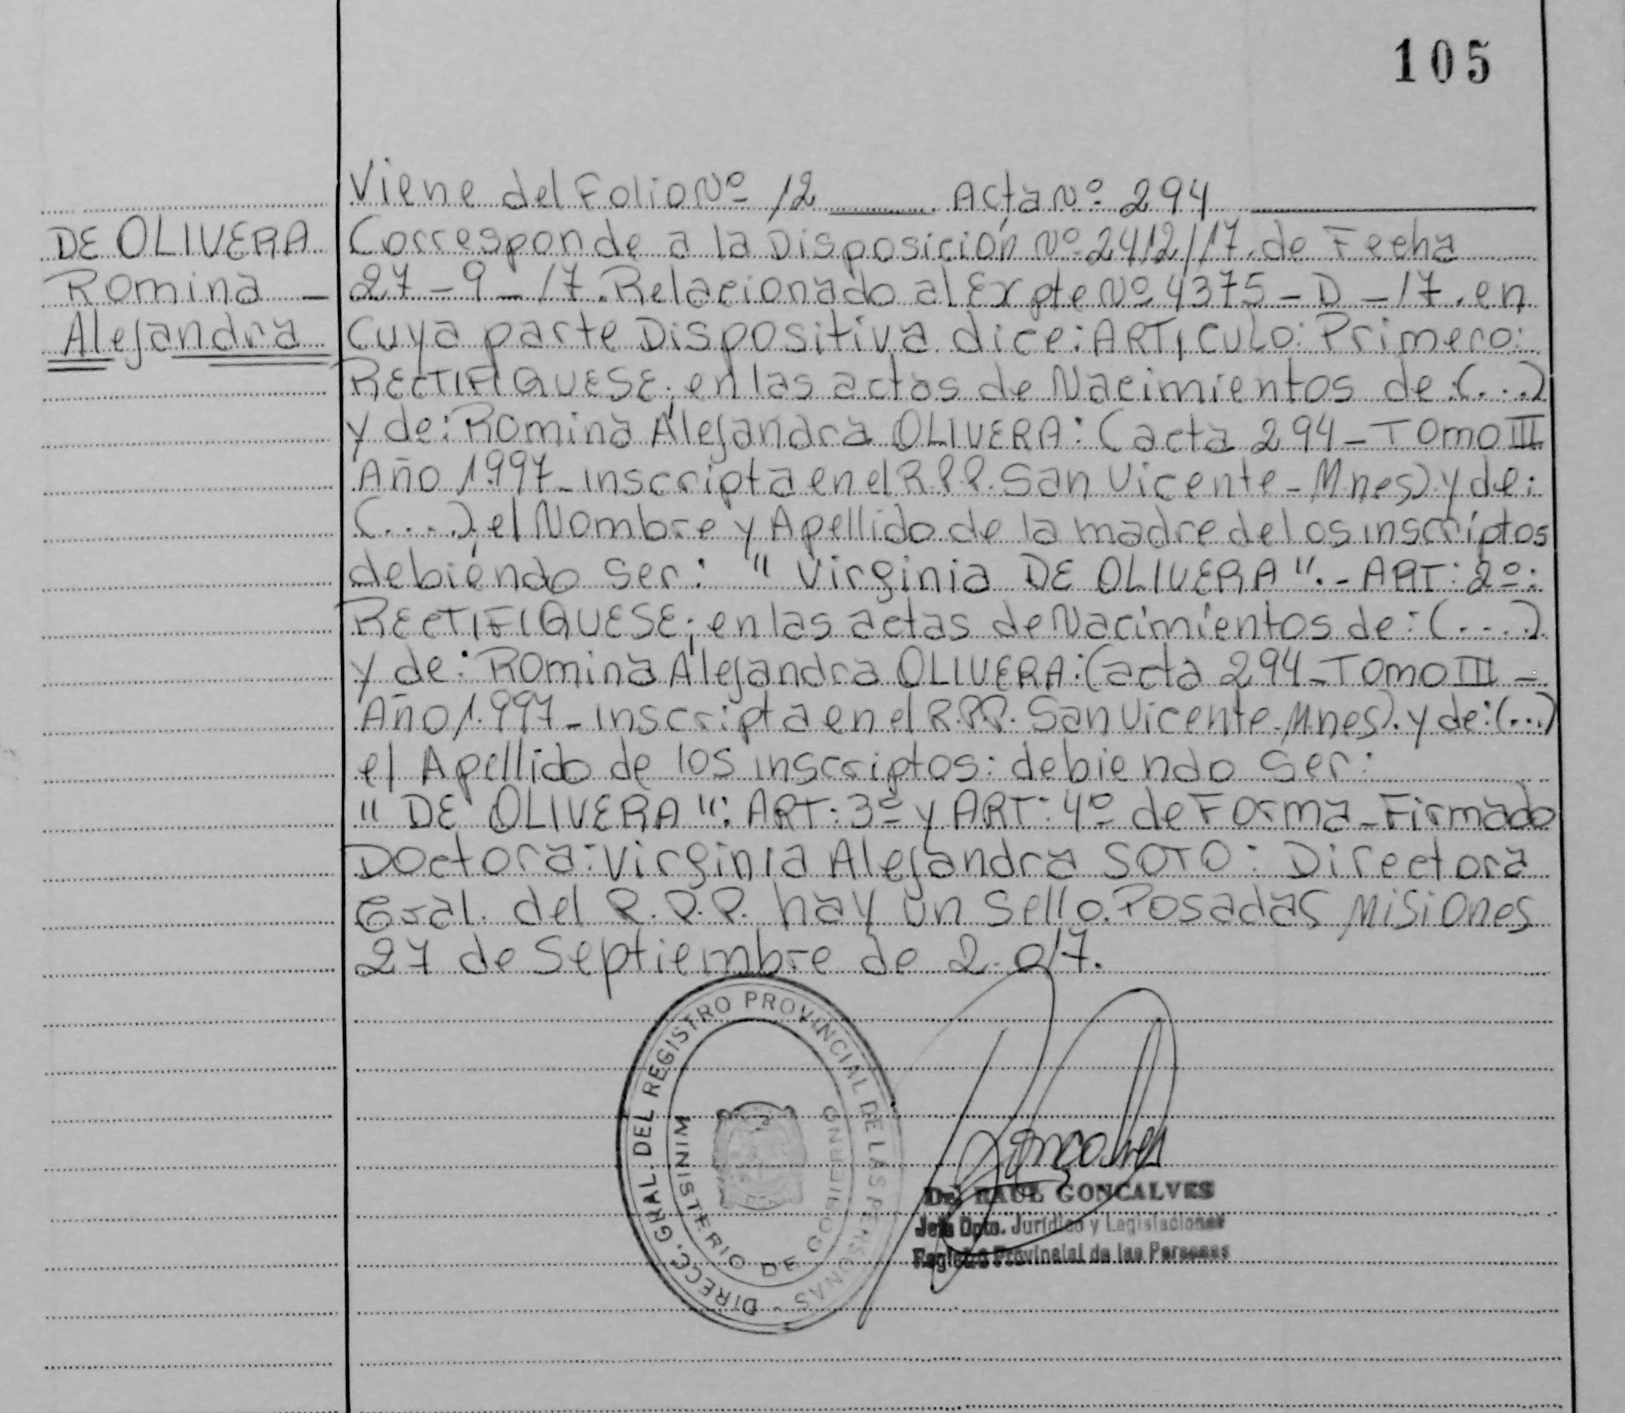 105
Viene del Folio Nº 12 ____ Acta Nº 294 ____
DE OLIVERA
Romina –
Alejandra
Corresponde a la Disposición Nº 2412/17. de Fecha
27-9-17. Relacionado al Expte Nº 4375-D-17. en
Cuya parte Dispositiva dice: ARTICULO: Primero:
RECTIFIQUESE; en las actas de Nacimientos de: (...)
y de: Romina Alejandra OLIVERA: (acta 294-Tomo III
Año 1.997- inscripta en el R.P.P. San Vicente-Mnes) y de:
(....) el Nombre y Apellido de la madre de los inscriptos
debiendo ser: "Virginia DE OLIVERA".- ART: 2º:
RECTIFIQUESE; en las actas de Nacimientos de: (....)
y de: Romina Alejandra OLIVERA: (acta 294-Tomo III -
Año 1.997- inscripta en el R.P.P. San Vicente-Mnes). y de: (...)
el Apellido de los inscriptos: debiendo ser:
"DE OLIVERA": ART: 3º y ART: 4º de Forma-Firmado
Doctora: Virginia Alejandra SOTO: Directora
Gral. del R.P.P. hay un sello. Posadas Misiones
27 de Septiembre de 2.017.
DIRECC. GRAL. DEL REGISTRO PROVINCIAL DE LAS PERSONAS -
MINISTERIO DE GOBIERNO
Goncalves
Dr. RAUL GONCALVES
Jefe Dpto. Jurídico y Legislaciones
Registro Provincial de las Personas